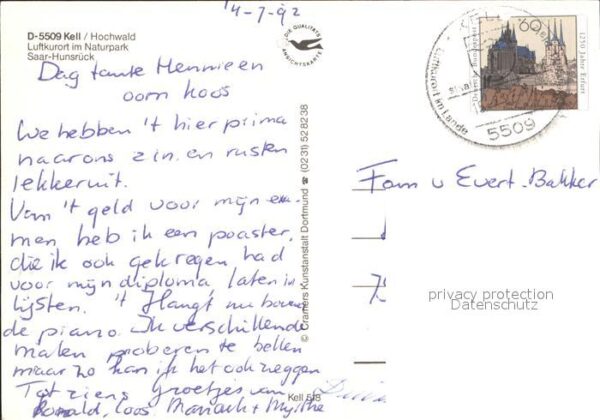 14-7-92
D-5509 Kell / Hochwald
Luftkurort im Naturpark
Saar-Hunsrück
DIE QUALITÄTS
ANSICHTSKARTE
Dag tante Mennie en
oom Koos
We hebben 't hier prima
naar ons zin en rusten
lekker uit.
Van 't geld voor mijn exa-
men heb ik een poaster,
die ik ook gekregen had
voor mijn diploma, laten in
lijsten. 't Hangt nu boven
de piano. Ik verschillende
malen proberen te bellen
maar zo kan ik het ook zeggen
Tot ziens Groetjes van
Ronald, Coos, Mariach + Myrthe
© Cramers Kunstanstalt Dortmund ☎ (0231) 528238
Kell 5/8
60
1250 Jahre Erfurt
Deutsche Bundespost
Luftkurort im Lande
5509
Fam v Evert-Bakker
privacy protection
Datenschutz